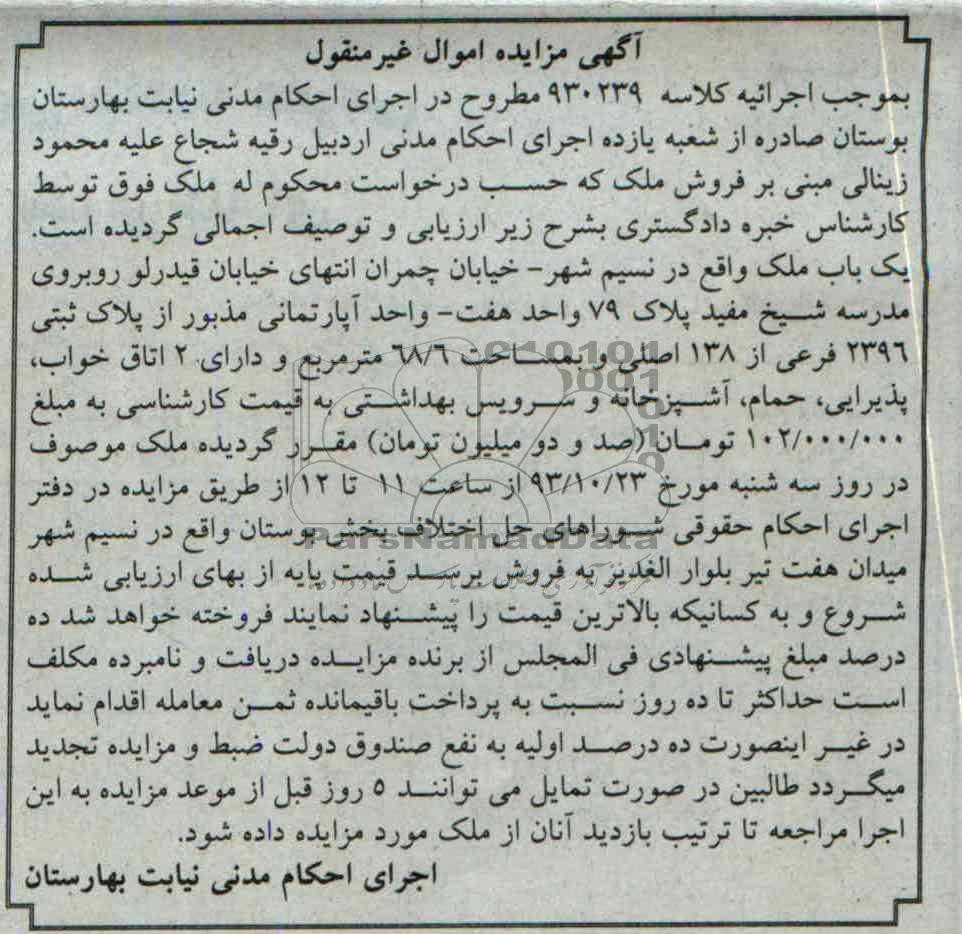 آگهی مزایده اموال غیرمنقول
بموجب اجرائیه کلاسه ۹۳۰۲۳۹ مطروح در اجرای احکام مدنی نیابت بهارستان
بوستان صادره از شعبه یازده اجرای احکام مدنی اردبیل رقیه شجاع علیه محمود
زینالی مبنی بر فروش ملک که حسب درخواست محکوم له ملک فوق توسط
کارشناس خبره دادگستری بشرح زیر ارزیابی و توصیف اجمالی گردیده است.
یک باب ملک واقع در نسیم شهر- خیابان چمران انتهای خیابان قیدرلو روبروی
مدرسه شیخ مفید پلاک ۷۹ واحد هفت- واحد آپارتمانی مذبور از پلاک ثبتی
۲۳۹۶ فرعی از ۱۳۸ اصلی و بمساحت ۶۸/۶ مترمربع و دارای ۲ اتاق خواب،
پذیرایی، حمام، آشپزخانه و سرویس بهداشتی به قیمت کارشناسی به مبلغ
۱۰۲/۰۰۰/۰۰۰ تومان (صد و دو میلیون تومان) مقرر گردیده ملک موصوف
در روز سه شنبه مورخ ۹۳/۱۰/۲۳ از ساعت ۱۱ تا ۱۲ از طریق مزایده در دفتر
اجرای احکام حقوقی شوراهای حل اختلاف بخش بوستان واقع در نسیم شهر
ParsNamadData
میدان هفت تیر بلوار الغدیر به فروش برسد قیمت پایه از بهای ارزیابی شده
شروع و به کسانیکه بالاترین قیمت را پیشنهاد نمایند فروخته خواهد شد ده
درصد مبلغ پیشنهادی فی المجلس از برنده مزایده دریافت و نامبرده مکلف
است حداکثر تا ده روز نسبت به پرداخت باقیمانده ثمن معامله اقدام نماید
در غیر اینصورت ده درصد اولیه به نفع صندوق دولت ضبط و مزایده تجدید
میگردد طالبین در صورت تمایل می توانند ۵ روز قبل از موعد مزایده به این
اجرا مراجعه تا ترتیب بازدید آنان از ملک مورد مزایده داده شود.
اجرای احکام مدنی نیابت بهارستان